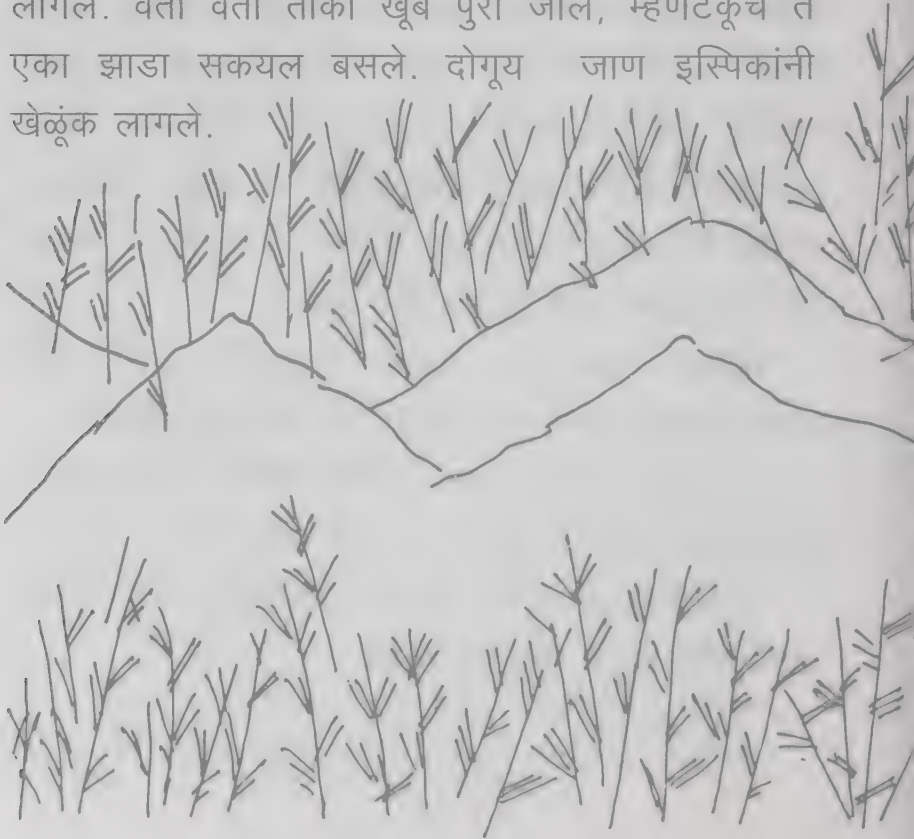 लागले. वतां वतां तांका खूब पुरो जाले, म्हणटकूच ते
एका झाडा सकयल बसले. दोगूय जाण इस्पिकांनी
खेळूंक लागले.